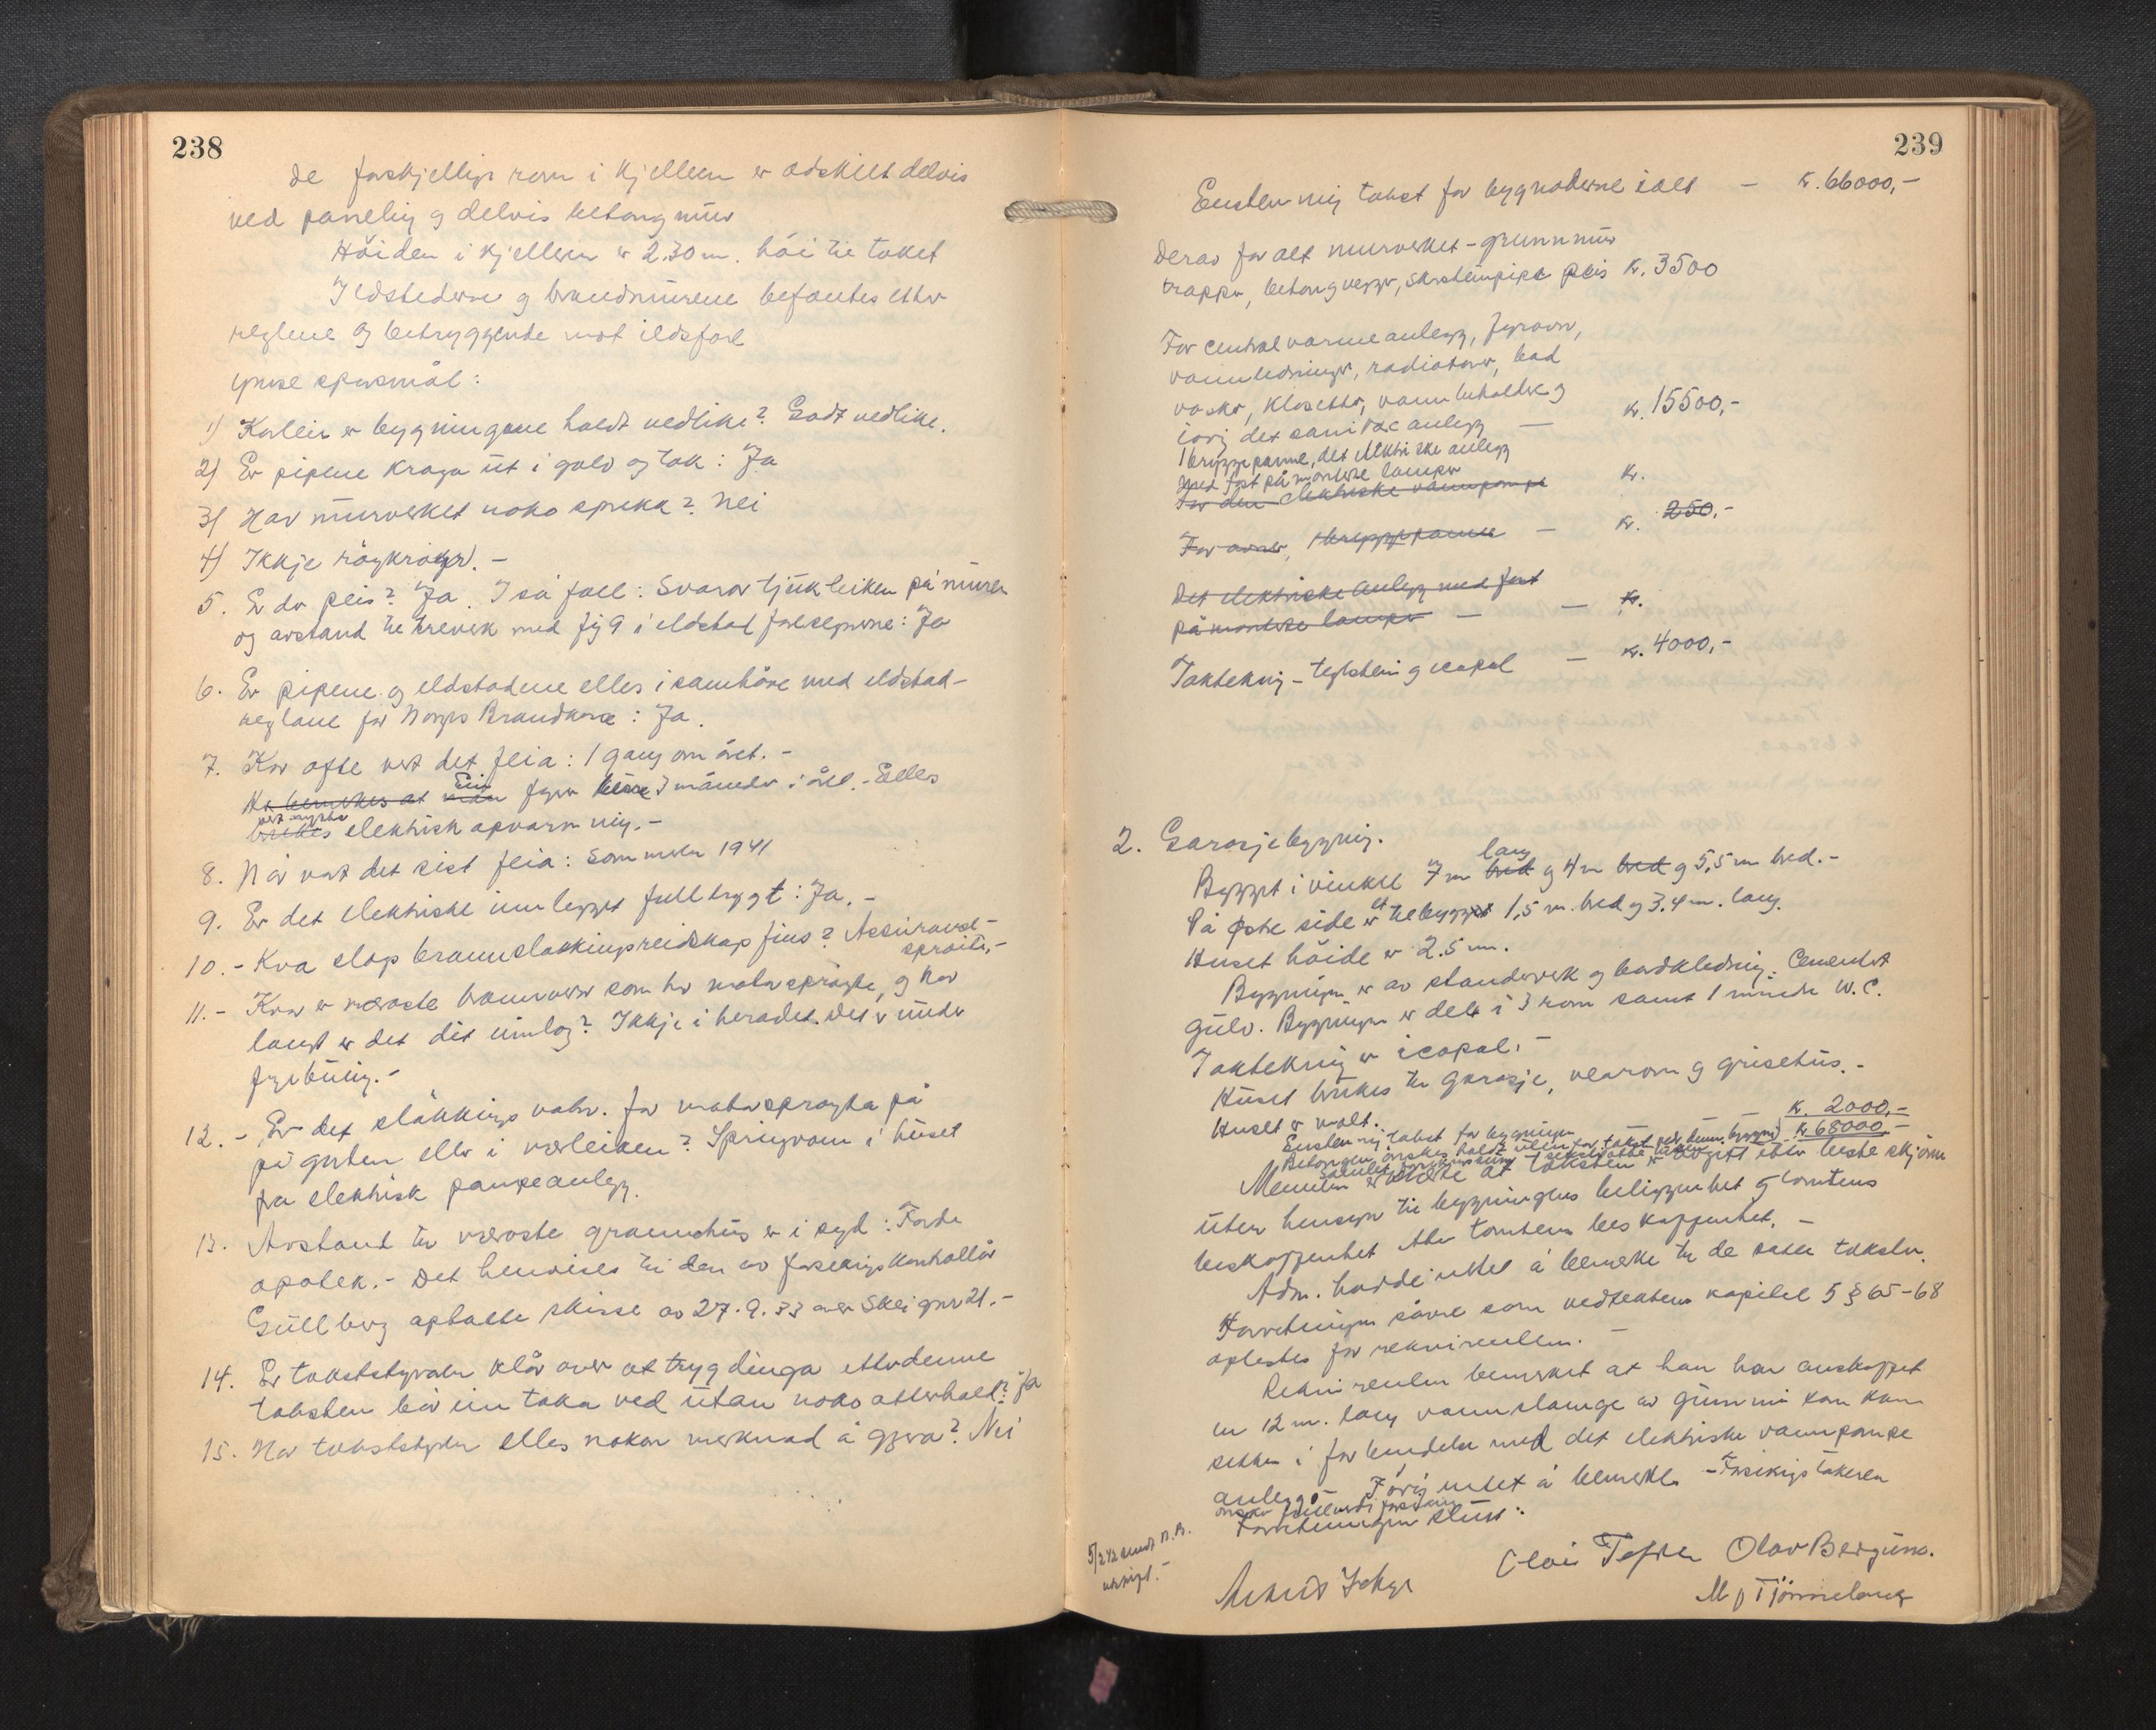 238
De forskjellige rom i kjelleren er adskilt delvis
ved paneling og delvis betong mur
Höiden i kjelleren er 2.30 m. höi til taket
Ildstederne og brandmurene befantes etter
reglene og betryggende mot ildsfare
ymse spursmål:
1) Korleis er bygningane haldt vedlike? Godt vedlike.
2) Er pipene kraga ut i golv og tak: Ja
3) Har murverket noko sprekk? Nei
4) Ikkje röykrör. -
5. Er der peis? Ja. I så fall: Svarar tjukkleiken på muren
og avstand til treverk med fig 9 i eldstad forsegnene: Ja
6. Er pipene og eldstadene elles i samhöve med eldstad-
reglane for Norges Brandkasse: Ja.
7. Kor ofte vert det feia: 1 gang om året. -
Me bemerkes at man Ein fyrer bare 3 måneder i året. - Elles
brukes vert nytta elektrisk opvarming. -
8. Når vart det sist feia: Sommeren 1941
9. Er det elektriske innlegget fullt trygt: Ja. -
10. - Kva slag brannsløkkingsreidskap fins? Assuranse-
sprøite. -
11. - Kva er næraste brannvern som har motorsprøyte, og kor
langt er det dit innlag? Ikkje i heradet. Det er under
fyrebuing. -
12. - Er det slökkings vatn for motorsprøyta på
på garden eller i nærleiken? Springvann i huset
fra elektrisk pumpeanlegg.
13. Avstand til næraste grannehus er i syd: Førde
apotek. - Det henvises til den av forsikringskontrollör
Gullberg optatte skisse av 27.9.33 over Skei gnr 21. -
14. Er takststyraren klår over at trygdinga etter denne
taksten blir inntaka ved utan noko atterhald? Ja
15. Har takststyrar elles nokon merknad å gjera? Nei
239
Enstemmig takst for bygnaderne ialt - kr. 66000,-
Derav for alt murverket - grunnmur
trapper, betongvegger, skorsteinpipe peis kr. 3500
For centralvarmeanlegg, fyrovn,
vannledninger, radiatorer, bad
vasker, klosetter, vannbeholdere og
iøvrig det sanitære anlegg - kr. 15500,-
1 bryggepanne, det elektriske anlegg
med fast påmonterte lamper
For den elektriske vannpumpe kr.
For ovner, 1 bryggepanne - kr. 250.-
Det elektriske anlegg med fast
påmonterte lamper - - kr.
Taktekning - teglstein og icopal - kr. 4000,-
2. Garasjebygning.
Bygget i vinkel 7 m bred lang og 4 m bred og 5,5 m bred. -
På østre side er et tilbygg 1,5 m. bred og 3,4 m. lang.
Huset höide er 2.5 m.
Bygningen er av standerverk og bordkledning. Cementert
gulv. Bygningen er delt i 3 rom samt 1 mindre W.C.
Taktekning er icopal. -
Huset brukes til garasje, vedrom og grisehus. -
Huset er malt.
Enstemmig takst for bygningen kr. 2000,-
Betongen ønskes holdt utenfor takst ved denne bygning
Samlet forsikringssum kr 68000,-
Mennene erklærte at taksten er avgitt efter beste skjønn
uten hensyn til bygningens beliggenhet og tomtens
beskaffenhet eller tomtens beskaffenhet. -
Adm. hadde intet å bemerke til de satte takster.
Forretningen såvel som vedtektens kapitel 5 § 65-68
oplestes for rekvirenten. -
Rekvirenten bemerket at han har anskaffet
en 12 m. lang vannslange av gummi som kan
settes i forbindelse med det elektriske vannpumpe
anlegg. - Forøvrig intet å bemerke - Forsikringstakeren
ønsker fullverdi forsikring
Forretningen slutt:
5/2 42 sendt N.B.
utskrift. -
Olai Tefre Olav Bergum.
M J Tjönneland